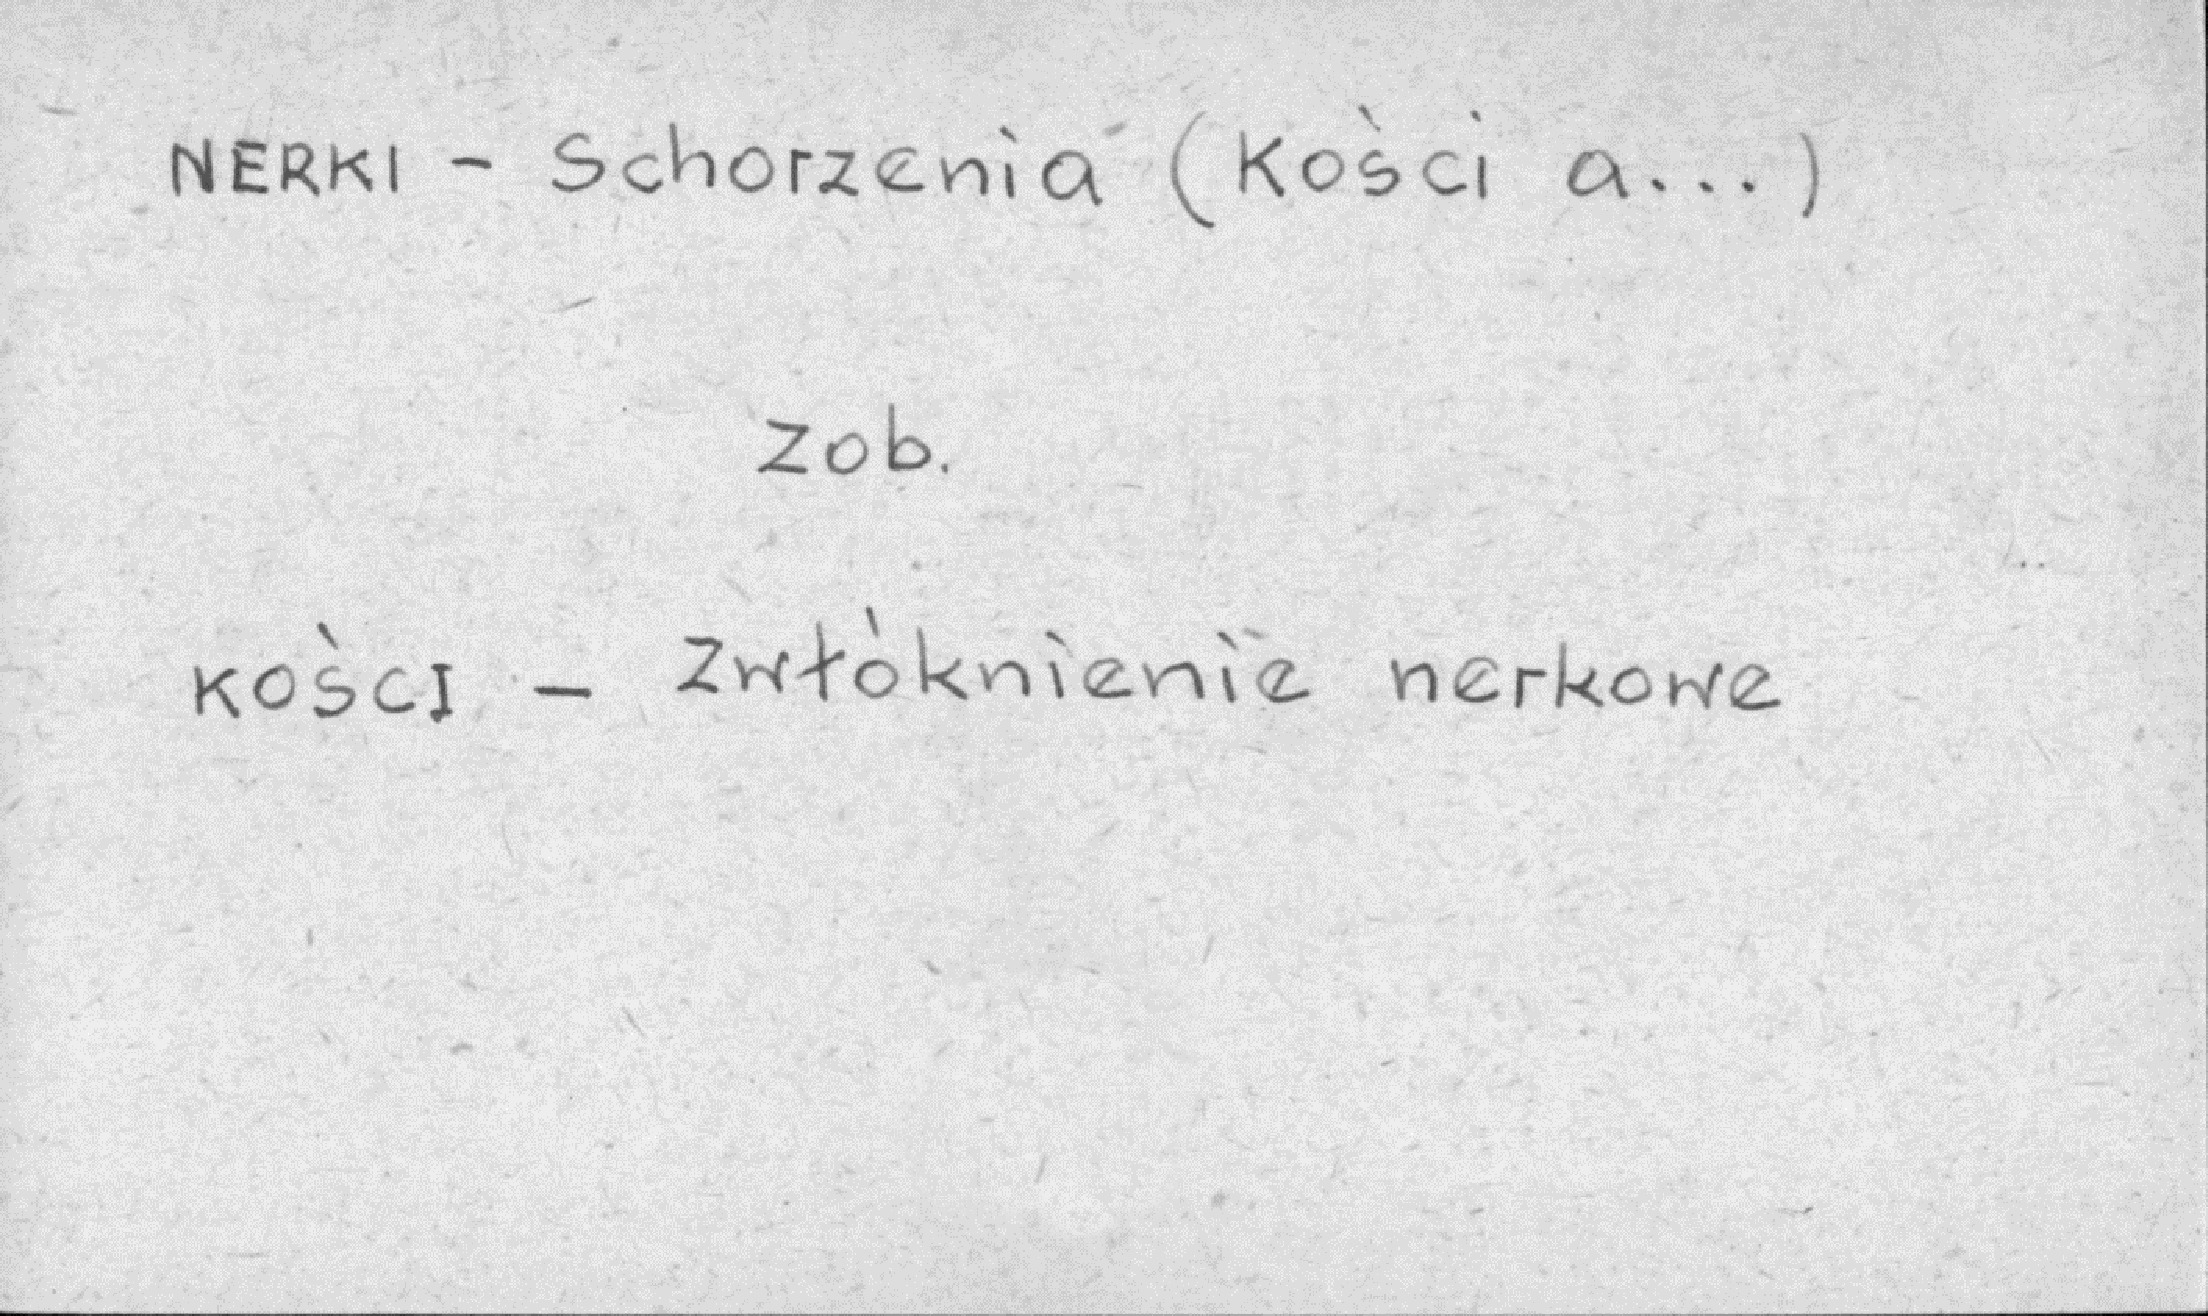 NERKI - Schorzenia (Kości a...)
zob.
KOŚCI - Zwłóknienie nerkowe